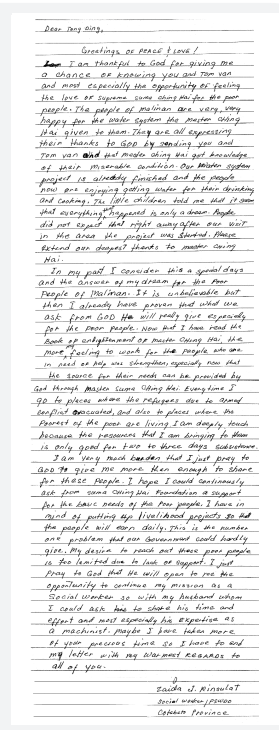 Dear Tong Ding,
Greetings of PEACE & LOVE!
I am thankful to God for giving me
a chance of knowing you and Tom van
and most especially the opportunity of feeling
the love of supreme suma ching Hai for the poor
people. The people of malinan are very, very
happy for the water system the master ching
Hai given to them. They are all expressing
their thanks to GOD by sending you and
Tom van and the master ching Hai got knowledge
of their miserable condition. Our water system
project is already finished and the people
now are enjoying getting water for their drinking
and cooking. The little children told me that it seem
that everything happened is only a dream. People
did not expect that right away after our visit
in the area the project was started. Please
extend our deepest thanks to master ching
Hai.
In my part I consider this a special days
and the answer of my dream for the Poor
People of Malinan. It is unbelievable but
then I already have proven that what we
ask from GOD He will really give especially
for the poor people. Now that I have read the
Book of enlightenment of master ching Hai the
more feeling to work for the people who are
in need of help was strengthen, especially now that
the source for their needs can be provided by
God through master suma ching Hai. Everytime I
go to places where the refugees due to armed
conflict evacuated, and also to places where the
poorest of the poor are living I am deeply touch
because the resources that I am bringing to them
is only good for two to three days subsistence.
I am very much burden that I just pray to
GOD to give me more than enough to share
for these people. I hope I could continously
ask from suma ching Hai Foundation a support
for the basic needs of the poor people. I have in
mind of putting up livelihood projects so that
the people will earn daily. This is the number
one problem that our Government could hardly
give. My desire to reach out these poor people
is too lemited due to lack of support. I just
pray to God that he will open to me the
opportunity to continue my mission as a
social worker so with my husband whom
I could ask him to share his time and
effort and most especially his expertise as
a machinist. Maybe I have taken more
of your precious time so I have to end
my letter with my warmest REGARDS to
all of you.
Zaida J. Rinsulat
social worker/PSWDO
Cotabato Province